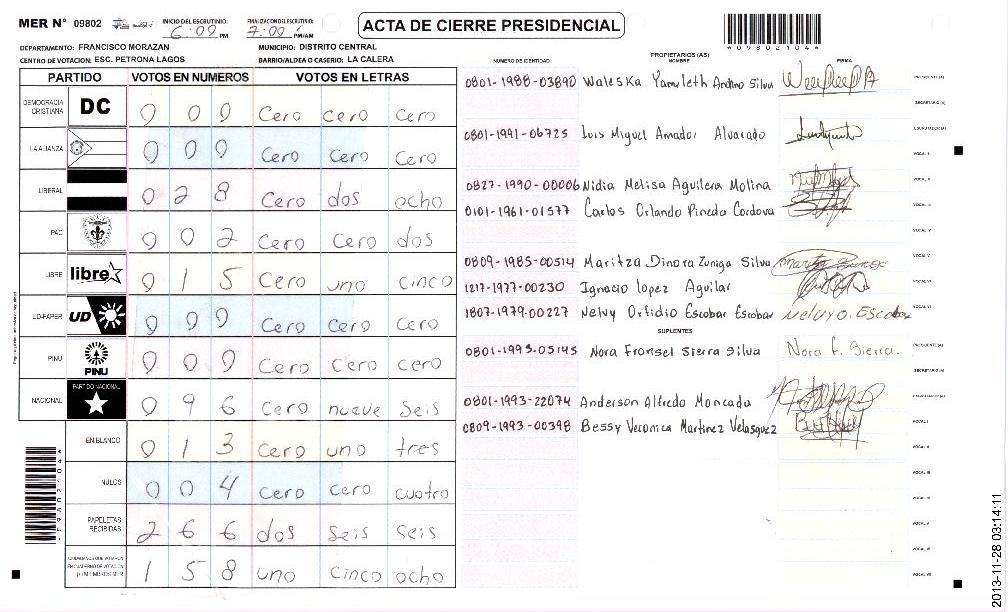 MER N° 09802
INICIO DEL ESCRUTINIO:
6:09 PM
FINALIZACION DEL ESCRUTINIO:
7:00 PM/AM
ACTA DE CIERRE PRESIDENCIAL
*09802104*
DEPARTAMENTO: FRANCISCO MORAZAN
MUNICIPIO: DISTRITO CENTRAL
CENTRO DE VOTACION: ESC. PETRONA LAGOS
BARRIO/ALDEA O CASERIO: LA CALERA
PARTIDO VOTOS EN NUMEROS VOTOS EN LETRAS
DEMOCRACIA CRISTIANA DC 0 0 0 Cero cero cero
LA ALIANZA 0 0 0 Cero Cero Cero
LIBERAL 0 2 8 Cero dos ocho
PAC 0 0 2 Cero Cero dos
LIBRE libre 0 1 5 Cero uno cinco
UD-FAPER UD 0 0 0 Cero Cero Cero
PINU PINU 0 0 0 Cero Cero cero
NACIONAL PARTIDO NACIONAL 0 9 6 Cero nueve seis
EN BLANCO 0 1 3 Cero uno tres
NULOS 0 0 4 Cero Cero cuatro
PAPELETAS RECIBIDAS 2 6 6 dos seis seis
CIUDADANOS QUE VOTARON EN CUADERNO DE VOTACION (+) MIEMBROS MER 1 5 8 uno Cinco ocho
*09802104*
PROPIETARIOS (AS)
NUMERO DE IDENTIDAD NOMBRE FIRMA
0801-1988-03890 Waleska Yamileth Andino Silva PRESIDENTE(A)
SECRETARIO(A)
0801-1991-06725 Luis Miguel Amador Alvarado ESCRUTADOR(A)
VOCAL I
0827-1990-00006 Nidia Melisa Aguilera Molina VOCAL II
0101-1961-01577 Carlos Orlando Pineda Cordova VOCAL III
VOCAL IV
0809-1985-00514 Maritza Dinora Zuniga Silva VOCAL V
1217-1977-00230 Ignacio lopez Aguilar VOCAL VI
1807-1979-00227 Nelvy Orfidio Escobar Escobar Nelvy O. Escobar VOCAL VII
SUPLENTES
0801-1993-05145 Nora Fransel Sierra Silva Nora F. Sierra. PRESIDENTE(A)
SECRETARIO(A)
0801-1993-22074 Anderson Alfredo Moncada
0809-1993-00398 Bessy Veronica Martinez Velasquez VOCAL I
VOCAL II
VOCAL III
VOCAL IV
VOCAL V
VOCAL VI
VOCAL VII
2013-11-28 03:14:11